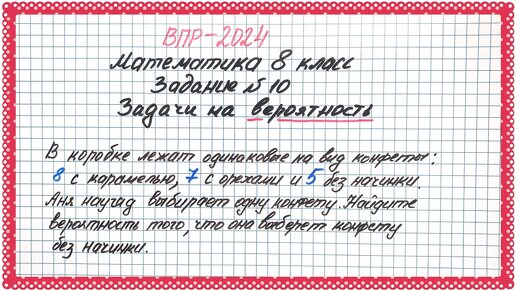 ВПР-2024
Математика 8 класс
Задание №10
Задачи на вероятность
В коробке лежат одинаковые на вид конфеты:
8 с карамелью, 7 с орехами и 5 без начинки.
Аня наугад выбирает одну конфету. Найдите
вероятность того, что она выберет конфету
без начинки.